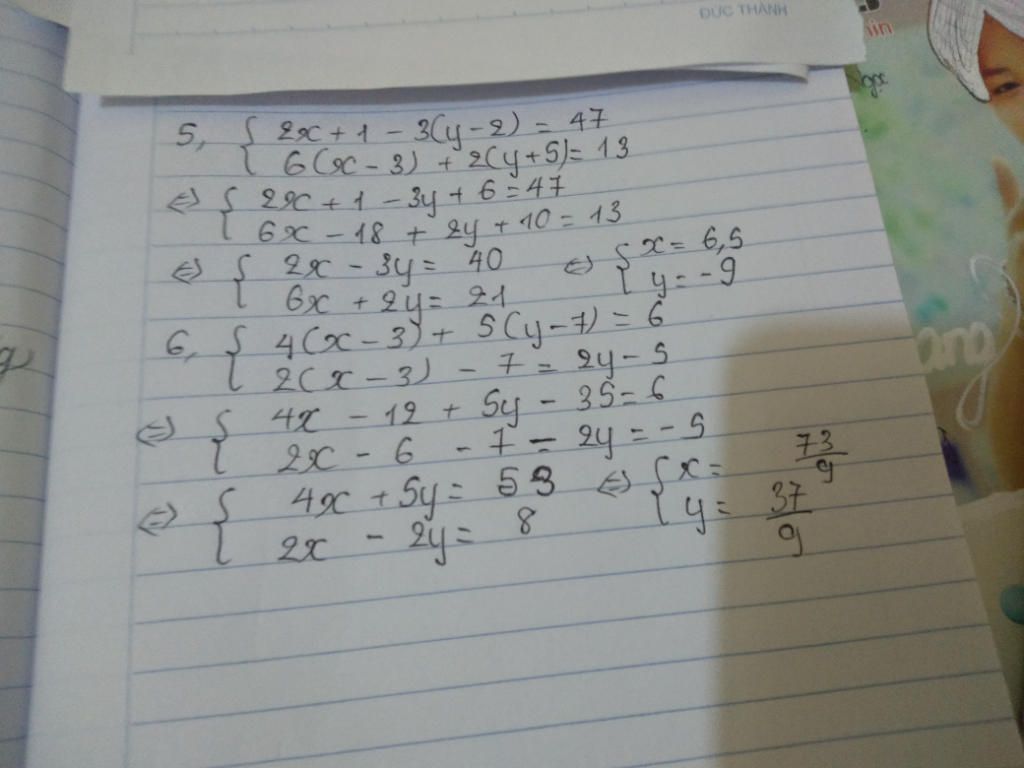 ĐỨC THÀNH
5, { 2x + 1 - 3(y - 2) = 47
6(x - 3) + 2(y + 5) = 13
⇔ { 2x + 1 - 3y + 6 = 47
6x - 18 + 2y + 10 = 13
⇔ { 2x - 3y = 40 ⇔ { x = 6,5
6x + 2y = 21 y = -9
6, { 4(x - 3) + 5(y - 7) = 6
2(x - 3) - 7 = 2y - 5
⇔ { 4x - 12 + 5y - 35 = 6
2x - 6 - 7 - 2y = -5
⇔ { 4x + 5y = 53 ⇔ { x = 73/9
2x - 2y = 8 y = 37/9